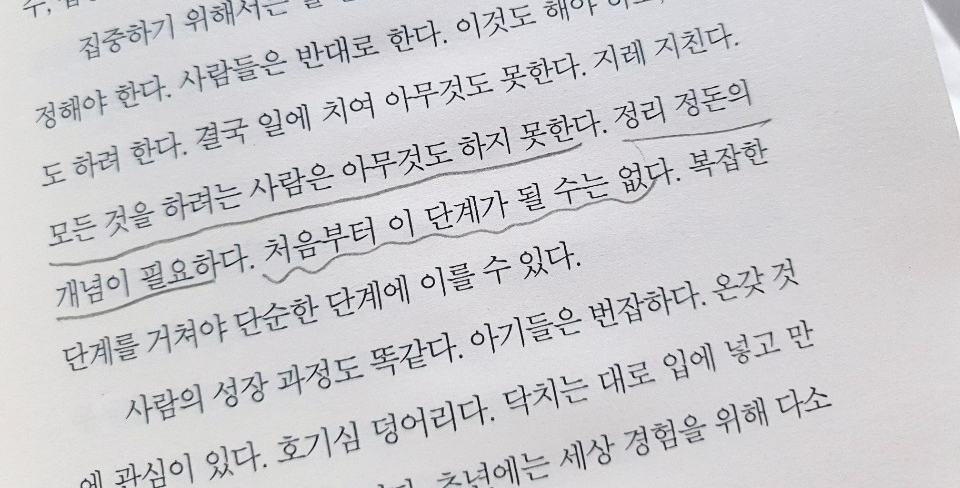 집중하기 위해서는
정해야 한다. 사람들은 반대로 한다. 이것도 해야
도 하려 한다. 결국 일에 치여 아무것도 못한다. 지레 지친다.
모든 것을 하려는 사람은 아무것도 하지 못한다. 정리 정돈의
개념이 필요하다. 처음부터 이 단계가 될 수는 없다. 복잡한
단계를 거쳐야 단순한 단계에 이를 수 있다.
사람의 성장 과정도 똑같다. 아기들은 번잡하다. 온갖 것
에 관심이 있다. 호기심 덩어리다. 닥치는 대로 입에 넣고 만
초년에는 세상 경험을 위해 다소